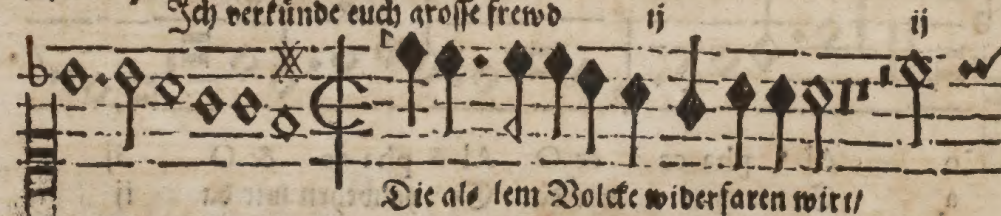 Ich verkünde euch grosse frewd ij ij
Die al⸗ lem Volcke widerfaren wirt/